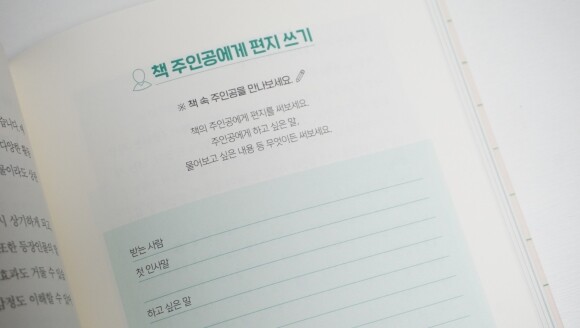 책 주인공에게 편지 쓰기
※ 책 속 주인공을 만나보세요.
책의 주인공에게 편지를 써보세요.
주인공에게 하고 싶은 말,
물어보고 싶은 내용 등 무엇이든 써보세요.
받는 사람
첫 인사말
하고 싶은 말
다양한 활
시 상기하게 되고
또한 등장인물의
효과도 거둘 수 있
감정도 이해할 수 있